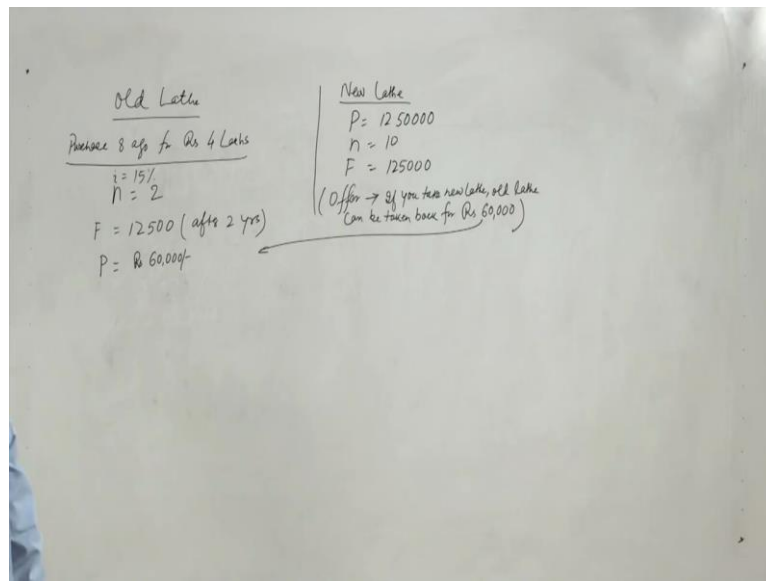 Old Lathe
Purchase 8 ago for Rs 4 Lakhs
i = 15%
n = 2
F = 12500 (after 2 yrs)
P = Rs 60,000/-
New Lathe
P = 1250000
n = 10
F = 125000
(Offer → If you take new lathe, old lathe
can be taken back for Rs 60,000)